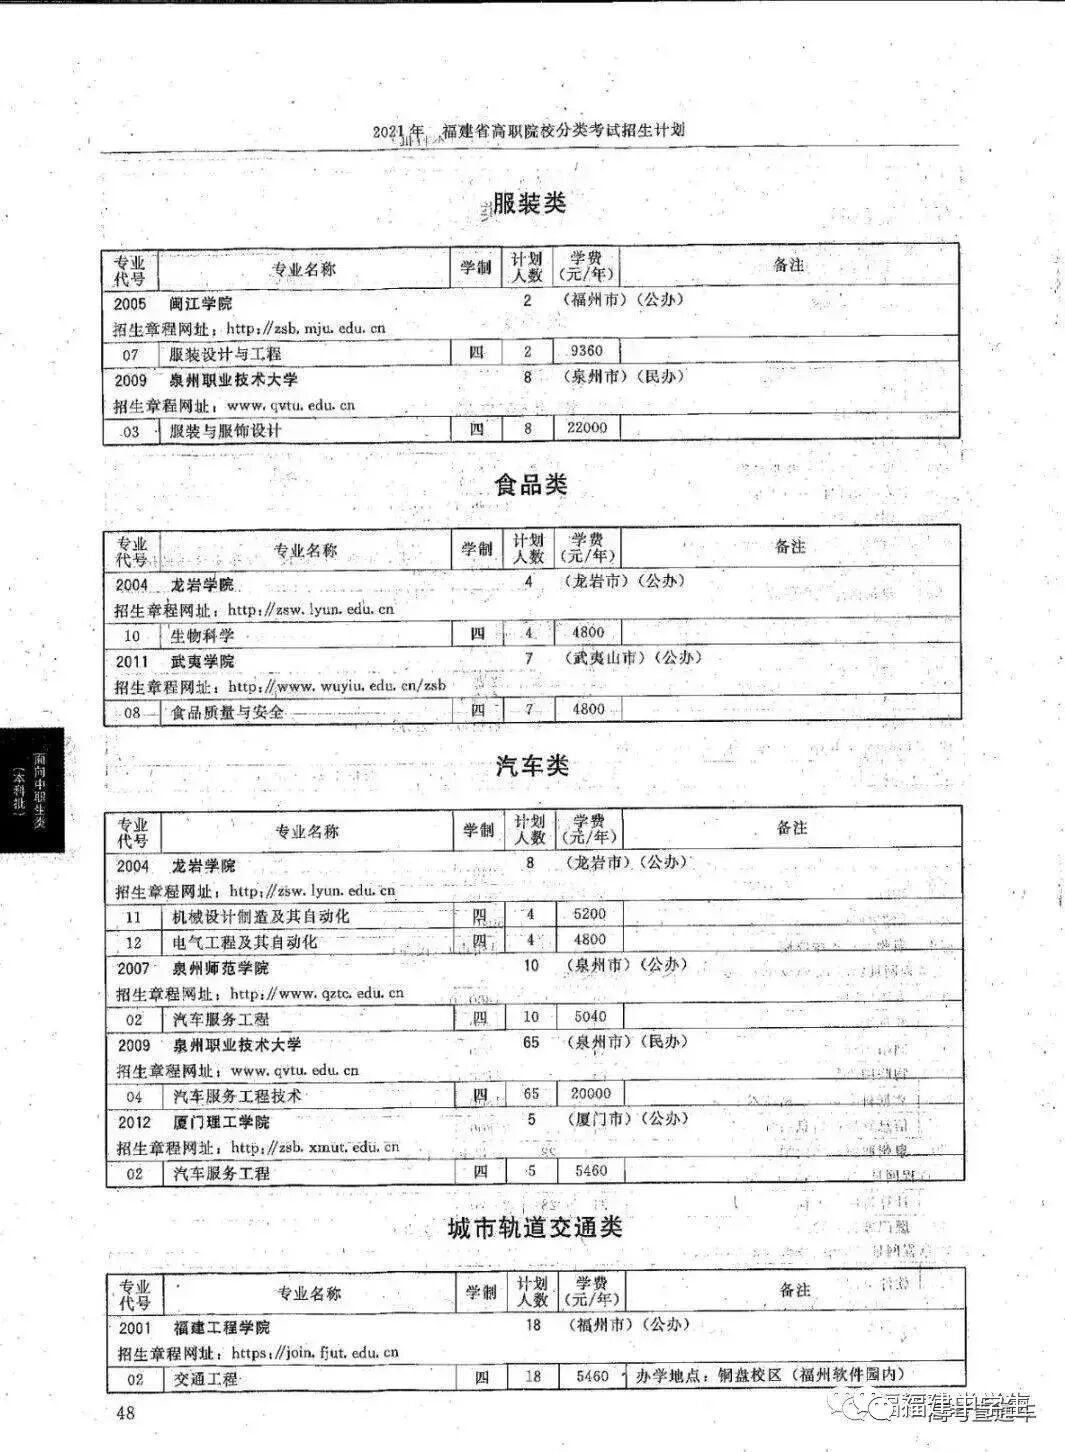 2021年 福建省高职院校分类考试招生计划
服装类
专业代号 专业名称 学制 计划人数 学费(元/年) 备注
2005 闽江学院 2 (福州市)(公办)
招生章程网址：http://zsb.mju.edu.cn
07 服装设计与工程 四 2 9360
2009 泉州职业技术大学 8 (泉州市)(民办)
招生章程网址：www.qvtu.edu.cn
03 服装与服饰设计 四 8 22000
食品类
专业代号 专业名称 学制 计划人数 学费(元/年) 备注
2004 龙岩学院 4 (龙岩市)(公办)
招生章程网址：http://zsw.lyun.edu.cn
10 生物科学 四 4 4800
2011 武夷学院 7 (武夷山市)(公办)
招生章程网址：http://www.wuyiu.edu.cn/zsb
08 食品质量与安全 四 7 4800
汽车类
专业代号 专业名称 学制 计划人数 学费(元/年) 备注
2004 龙岩学院 8 (龙岩市)(公办)
招生章程网址：http://zsw.lyun.edu.cn
11 机械设计制造及其自动化 四 4 5200
12 电气工程及其自动化 四 4 4800
2007 泉州师范学院 10 (泉州市)(公办)
招生章程网址：http://www.qztc.edu.cn
02 汽车服务工程 四 10 5040
2009 泉州职业技术大学 65 (泉州市)(民办)
招生章程网址：www.qvtu.edu.cn
04 汽车服务工程技术 四 65 20000
2012 厦门理工学院 5 (厦门市)(公办)
招生章程网址：http://zsb.xmut.edu.cn
02 汽车服务工程 四 5 5460
城市轨道交通类
专业代号 专业名称 学制 计划人数 学费(元/年) 备注
2001 福建工程学院 18 (福州市)(公办)
招生章程网址：https://join.fjut.edu.cn
02 交通工程 四 18 5460 办学地点：铜盘校区（福州软件园内）
面向中职生类
（本科批）
48